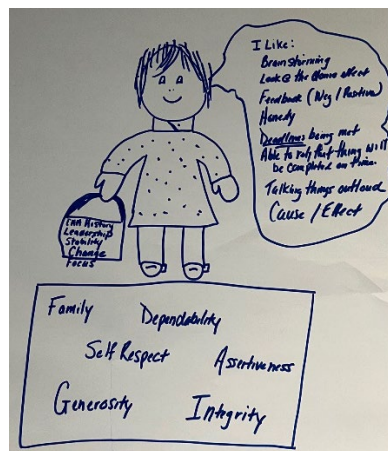 I Like:
Brainstorming
Look @ the effect
Feedback (Neg / Positive)
Honesty
Deadlines being met
Able to rely that things will
be completed on time.
Talking things outloud
Cause / Effect
History
Leadership
Stability
Change
Focus
Family
Dependability
Self Respect
Assertiveness
Generosity
Integrity